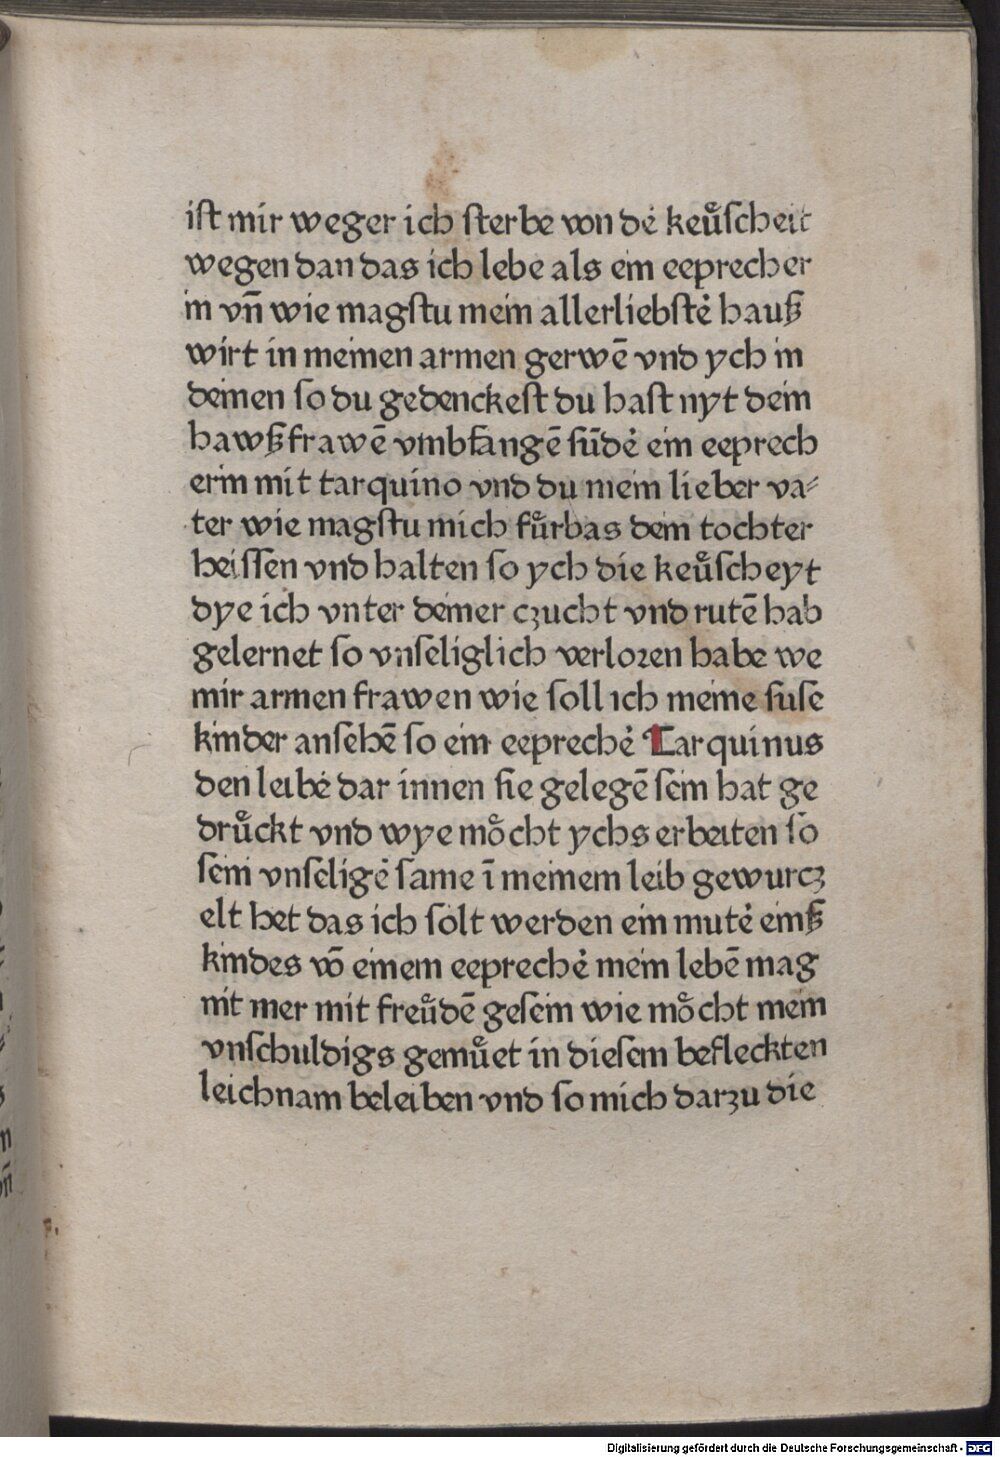 ist mir weger ich sterbe von dė keůscheit
wegen dan das ich lebe als ein eeprecher
in vn̄ wie magstu mein allerliebstė hauß
wirt in meinen armen gerwē vnd ych in
deinen so du gedenckest du hast nyt dein
hawßfrawē vmbfangē sūdė ein eeprech
erin mit tarquino vnd du mein lieber va⸗
ter wie magstu mich fůrbas dein tochter
heissen vnd halten so ych die keůscheyt
dye ich vnter deiner czucht vnd rutē hab
gelernet so vnseliglich verloren habe we
mir armen frawen wie soll ich meine suse
kinder ansehē so ein eeprechė Tarquinus
den leibė dar innen sie gelegē sein hat ge
drůckt vnd wye mo̊cht ychs erbeiten so
sein vnseligė same ī meinem leib gewurcz
elt het das ich solt werden ein mutė einß
kindes vō einem eeprechė mein lebē mag
nit mer mit freůdē gesein wie mo̊cht mein
vnschuldigs gemůet in diesem befleckten
leichnam beleiben vnd so mich darzu die
Digitalisierung gefördert durch die Deutsche Forschungsgemeinschaft - DFG